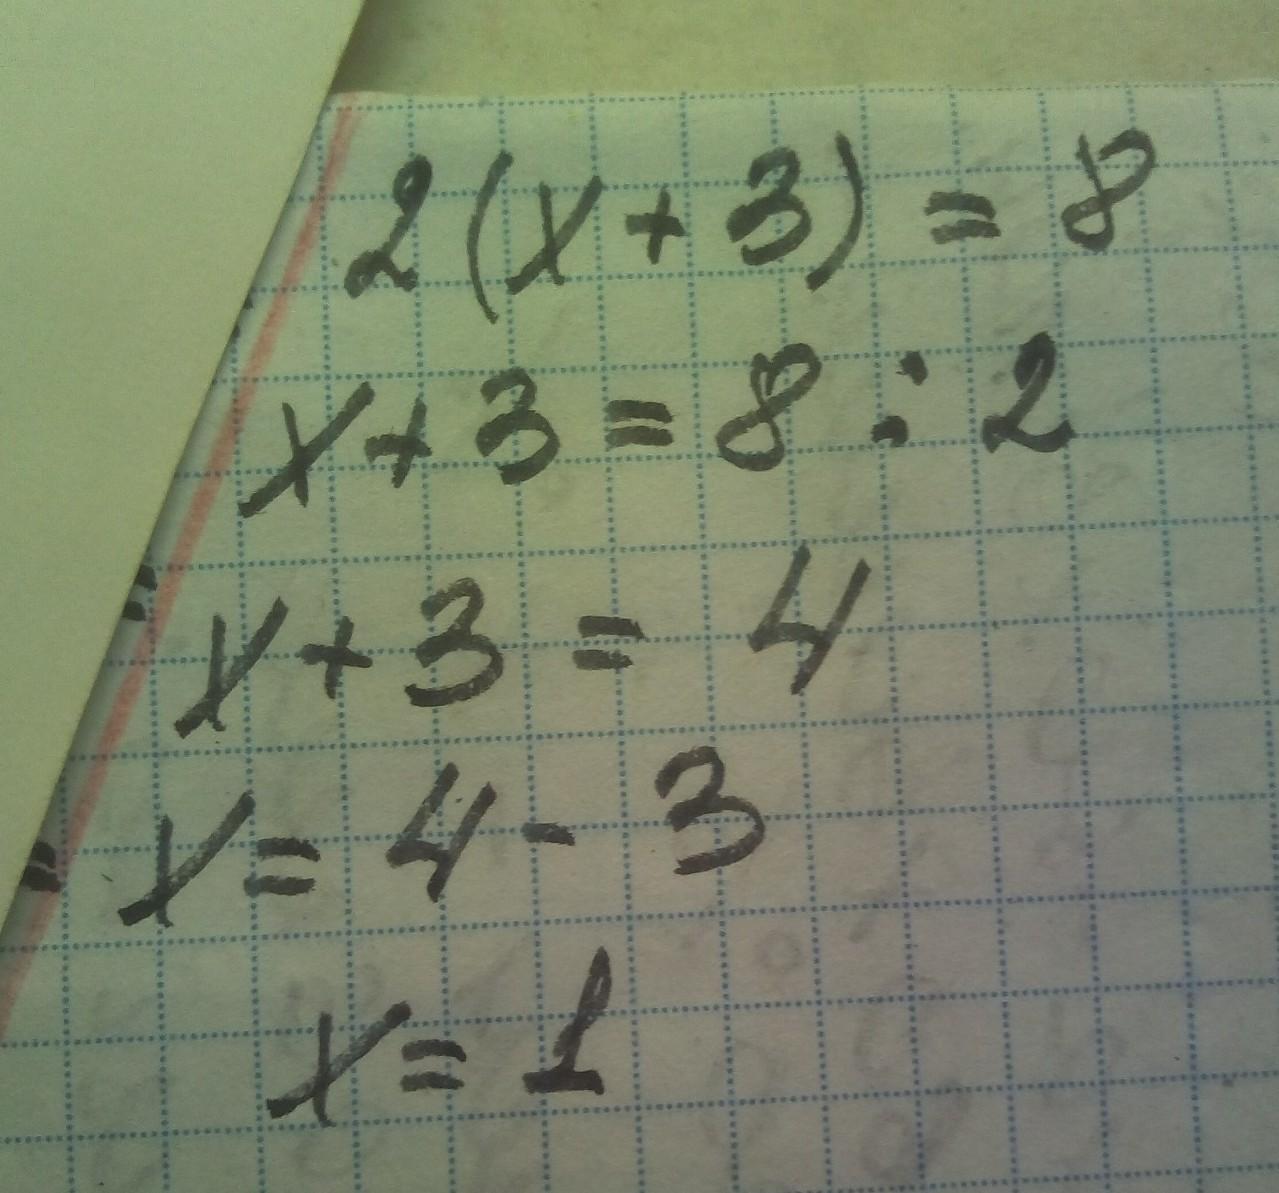 2(x+3)=8
x+3=8:2
x+3=4
x=4-3
x=1